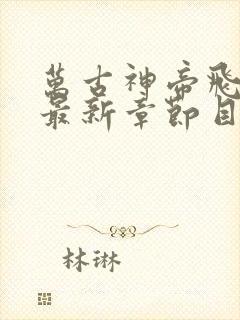 萬古神帝飛
最新章節目
林琳